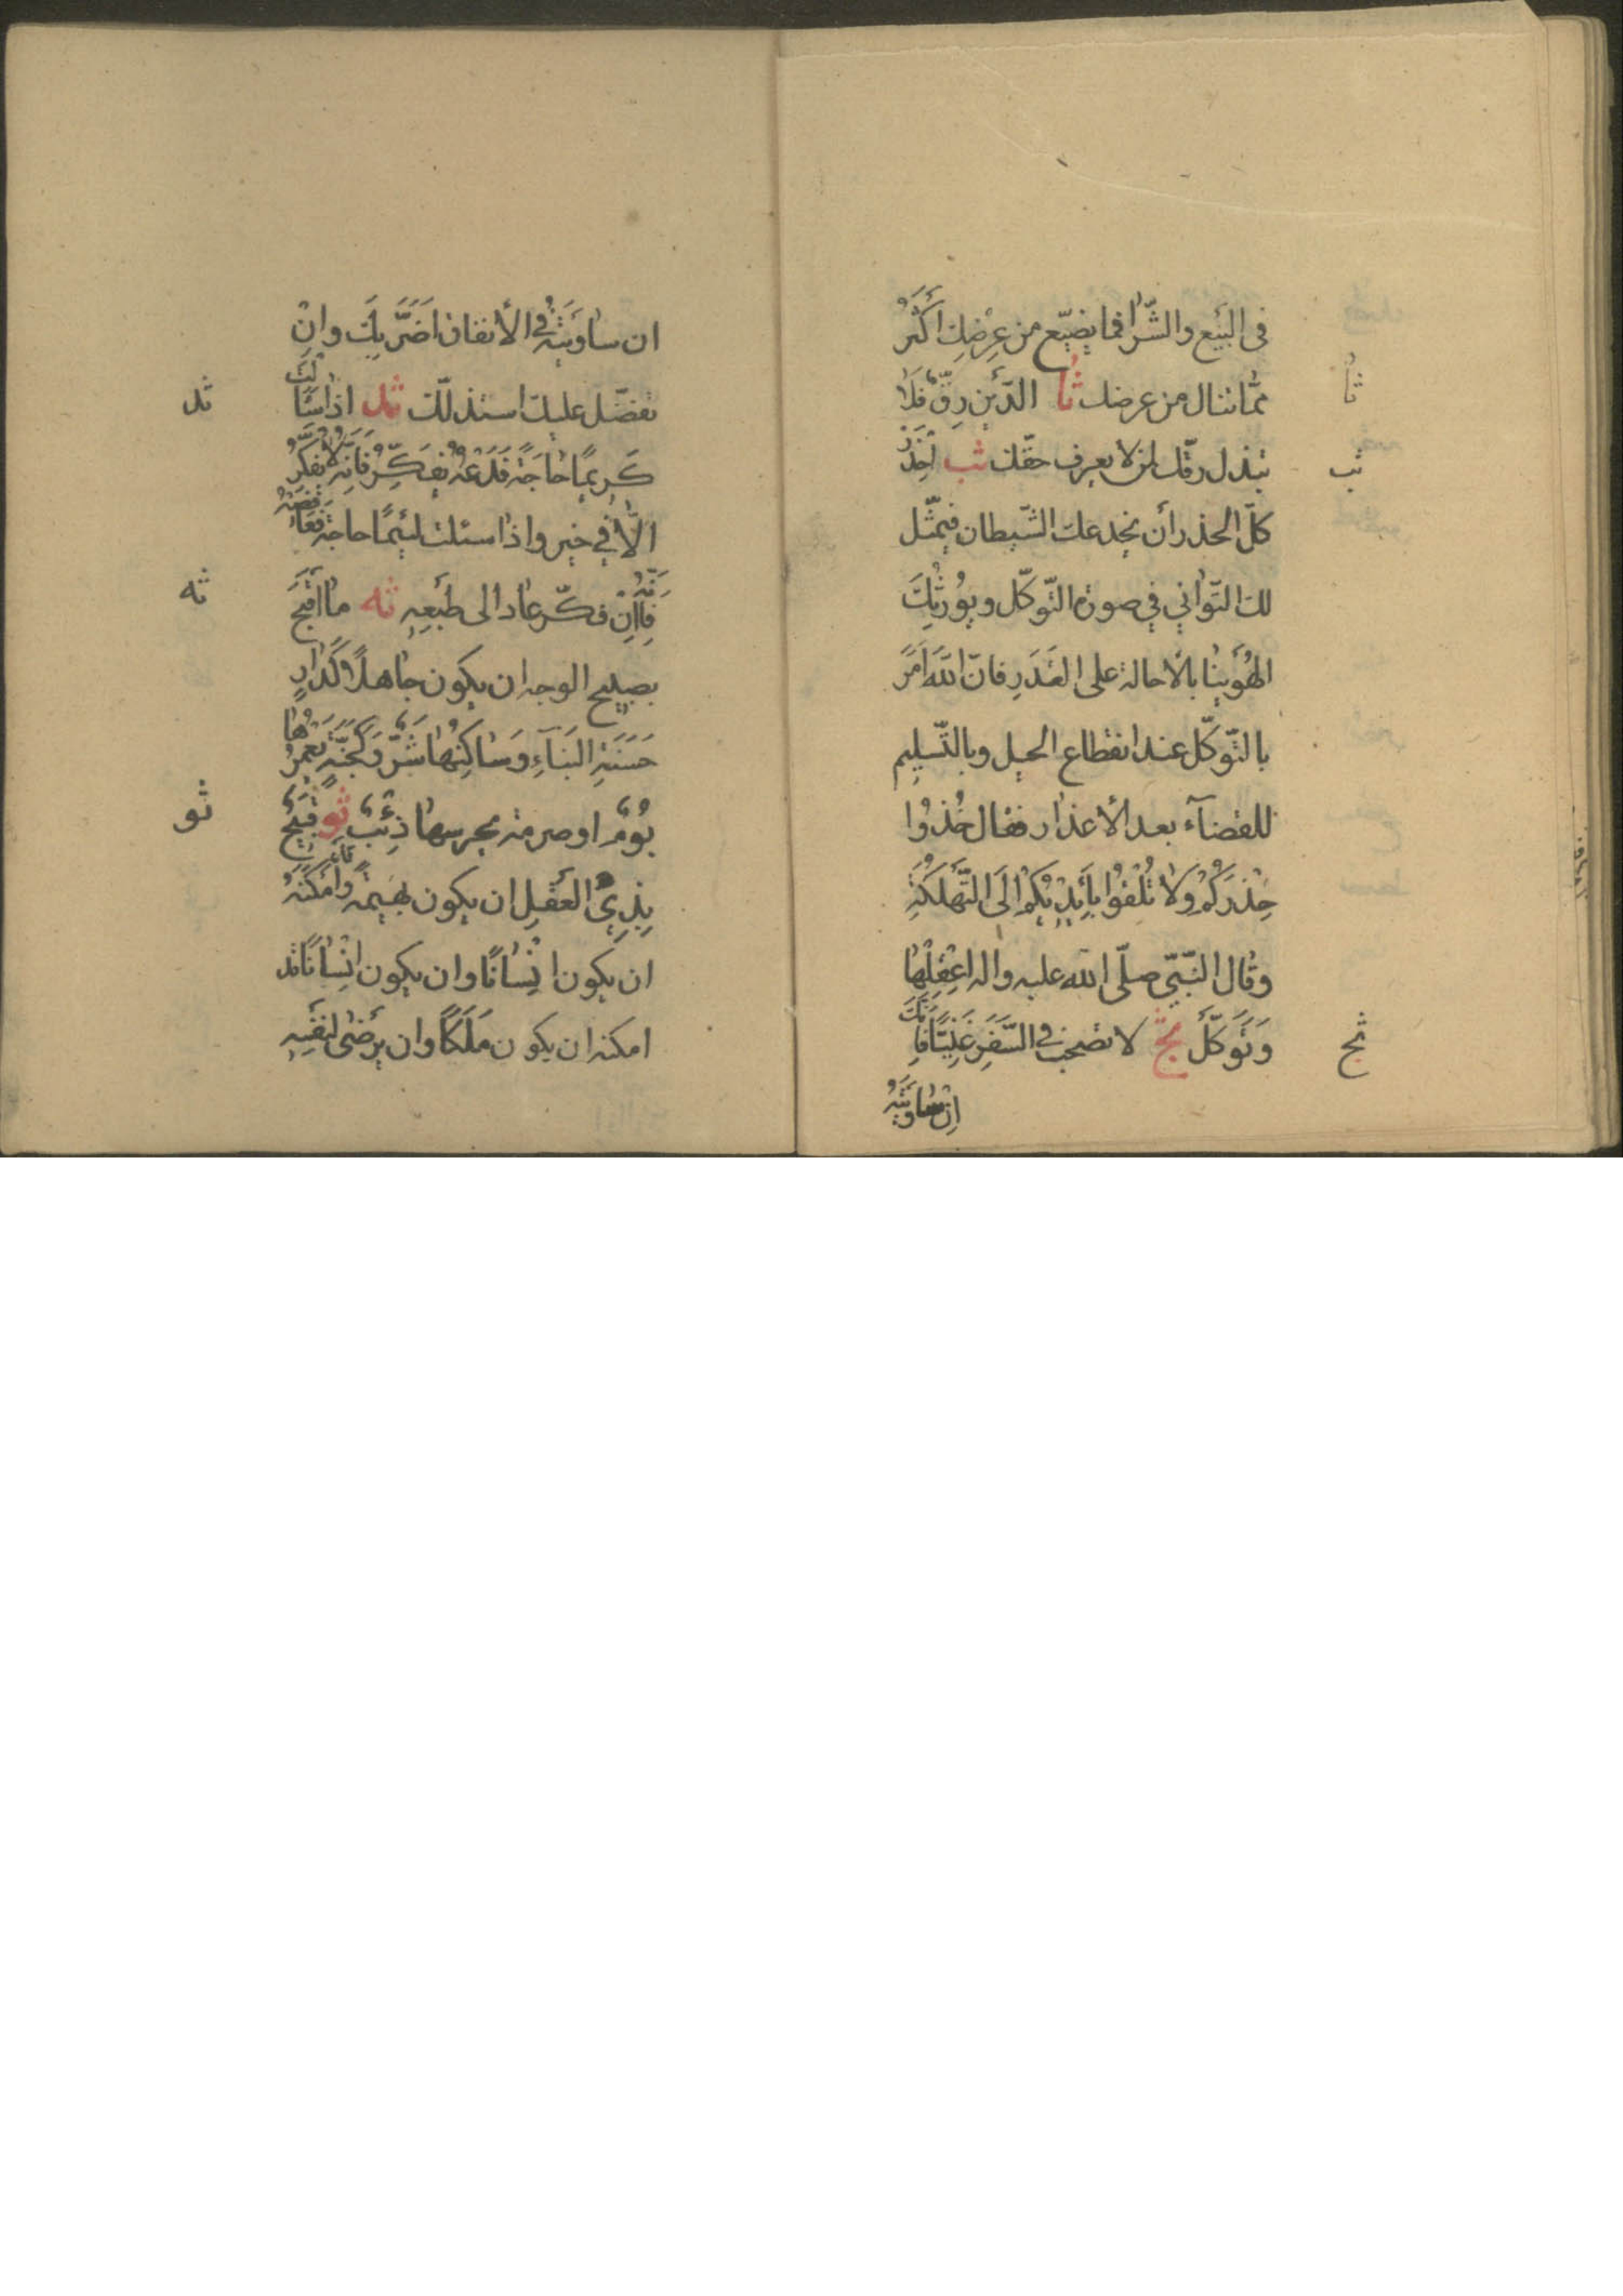 فى البَيْع والشّرا فما يضيّع من عِرْضِكَ اَكْثَرُ
ممّا تنال من عرضك ثا الدَّيْنِ رِقٌّ فَلَا
ثا
تبذل رقّك لمن لا يعرف حقّك ثب اِحْذَرْ
ثب
كلّ الحذر أن يخدعك الشّيطان فيمثّل
لك التّوانى في صورة التّوكّل ويُورِثُكَ
الهُوَيْنا بالاحالة على القَدَرِ فانّ اللّه اَمَرَ
بالتّوكّل عند انقطاع الحيل وبالتّسليم
للقضآء بعد الأعذار فقال خُذُوا
حِذْرَكُمْ وَلا تُلْقُوا بِاَيْدِيْكُمْ اِلَى التَّهْلُكَةِ
وقال النّبىّ صلّى اللّه عليه واله اعْقِلْهَا
وَتَوَكَّلْ ثج لا تصحب فى السَّفَرِ غَنِيًّا فَاِنَّكَ
ثج
اِنْ سٰاوَيْتَهُ
ان سٰاوَيْتَهُ فى الأنفاق اَضَرَّ بِكَ واِنْ
تفضّل عليك استذلّك ثد اذا سَئَاَلْتَ
ثد
كَرِيمًا حٰاجَةً فَدَعْهُ يُفَكِّرُ فَاِنَّهُ لا يُفَكِّرُ
الّا في خير واذا سئلت لئيمًا حاجة فَعَافِصْهُ
فَاِنَّهُ اِنْ فكّر عاد الى طَبْعِهِ ثه ما اَقْبَحَ
ثه
بصبيح الوجه ان يكون جاهلًا كَدٰارٍ
حَسَنَةِ البَنَآءِ وَسٰاكِنُهٰا شَرٌّ وَكَجَنَّةٍ يَعْمُرُهٰا
بُوْمٌ او صرمة يحرسها ذِئْبٌ ثو قَبِيْحٌ
ثو
بِذِى العَقْلِ ان يكون بَهِيمَةً وَقَدْ اَمْكَنَهُ
ان يكون اِنْسٰانًا وان يكون اِنْسٰانًا وقد
امكنه ان يكون مَلَكًا وان يَرْضٰى لِنَفْسِهِ